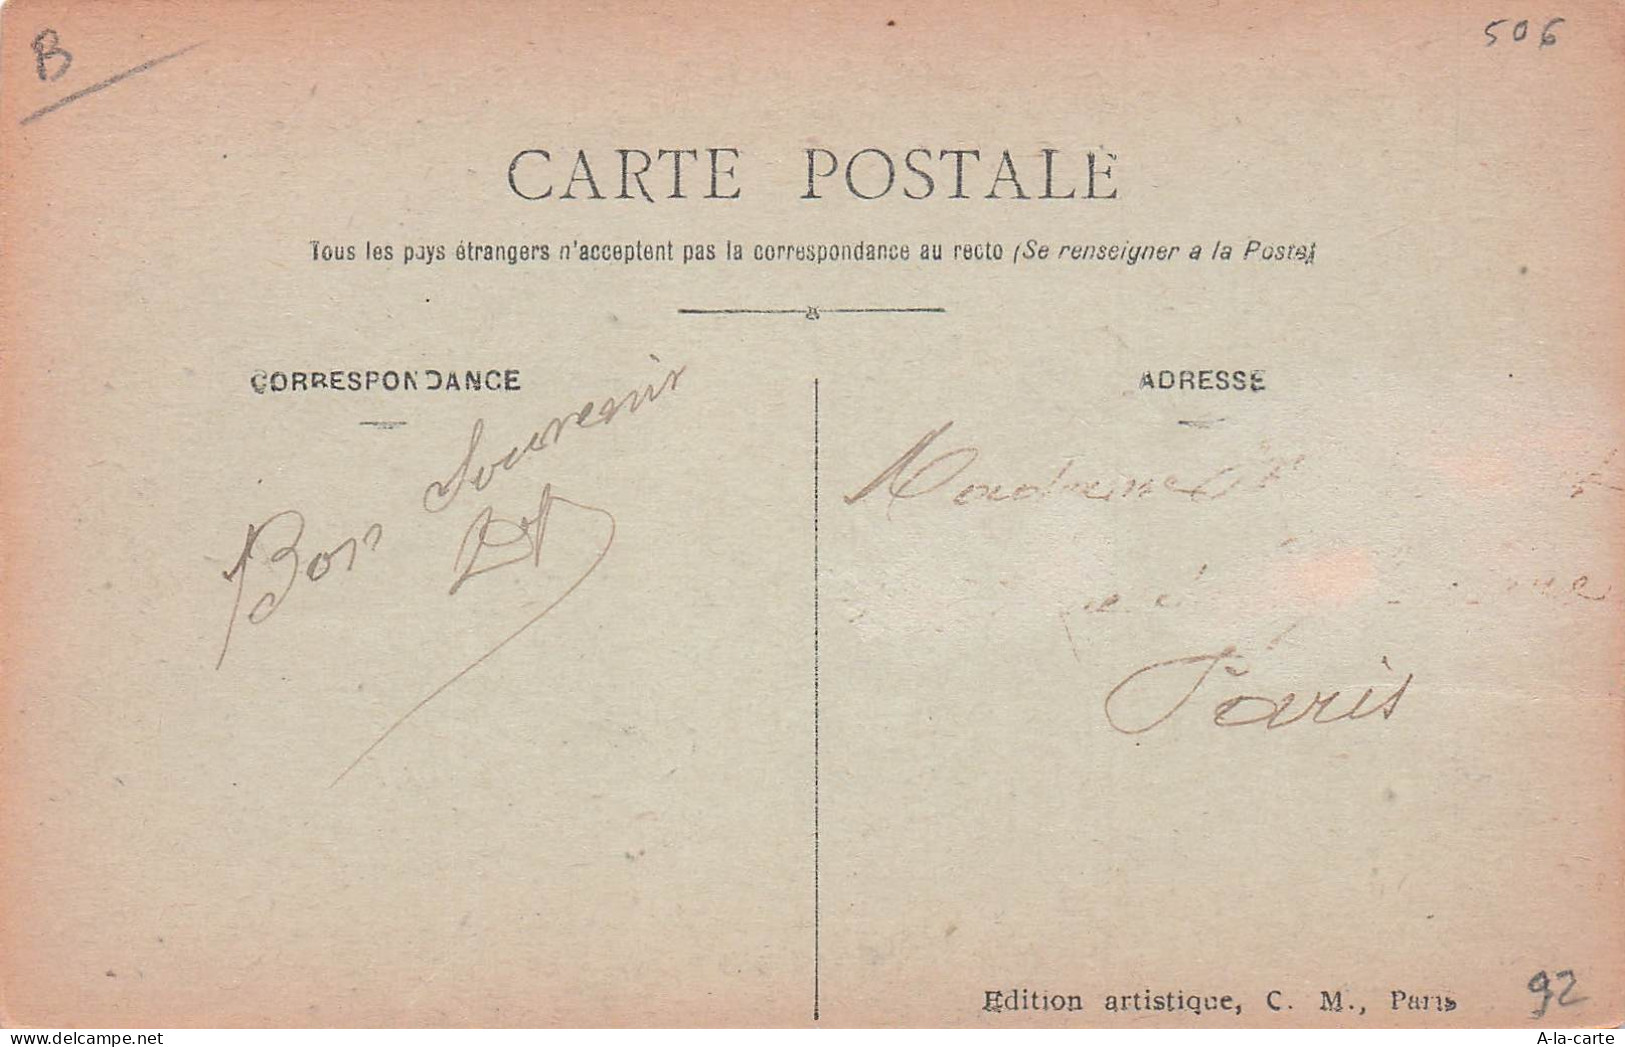 B
506
CARTE POSTALE
Tous les pays étrangers n'acceptent pas la correspondance au recto (Se renseigner a la Poste)
CORRESPONDANCE
ADRESSE
Bon Souvenir
Madame
Paris
Edition artistique, C. M., Paris
92
A-la-carte